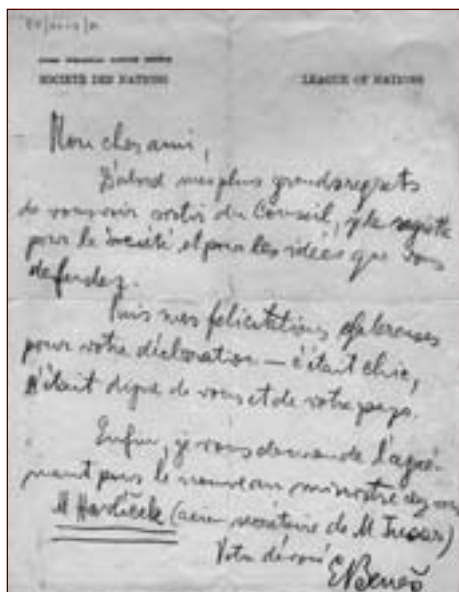 SOCIÉTÉ DES NATIONS
LEAGUE OF NATIONS
Mon cher ami,
D'abord mes plus grands regrets
de vous voir sortir du Conseil, je le regrette
pour la Société et pour les idées que vous
defendez.
Puis mes félicitations chaleureuses
pour votre déclaration — c'était chic,
c'était digne de vous et de votre pays.
Enfin, je vous demande l'agré-
ment pour le nouveau ministre chez vous
M (ancien secrétaire de M )
Votre dévoué
E Beneš